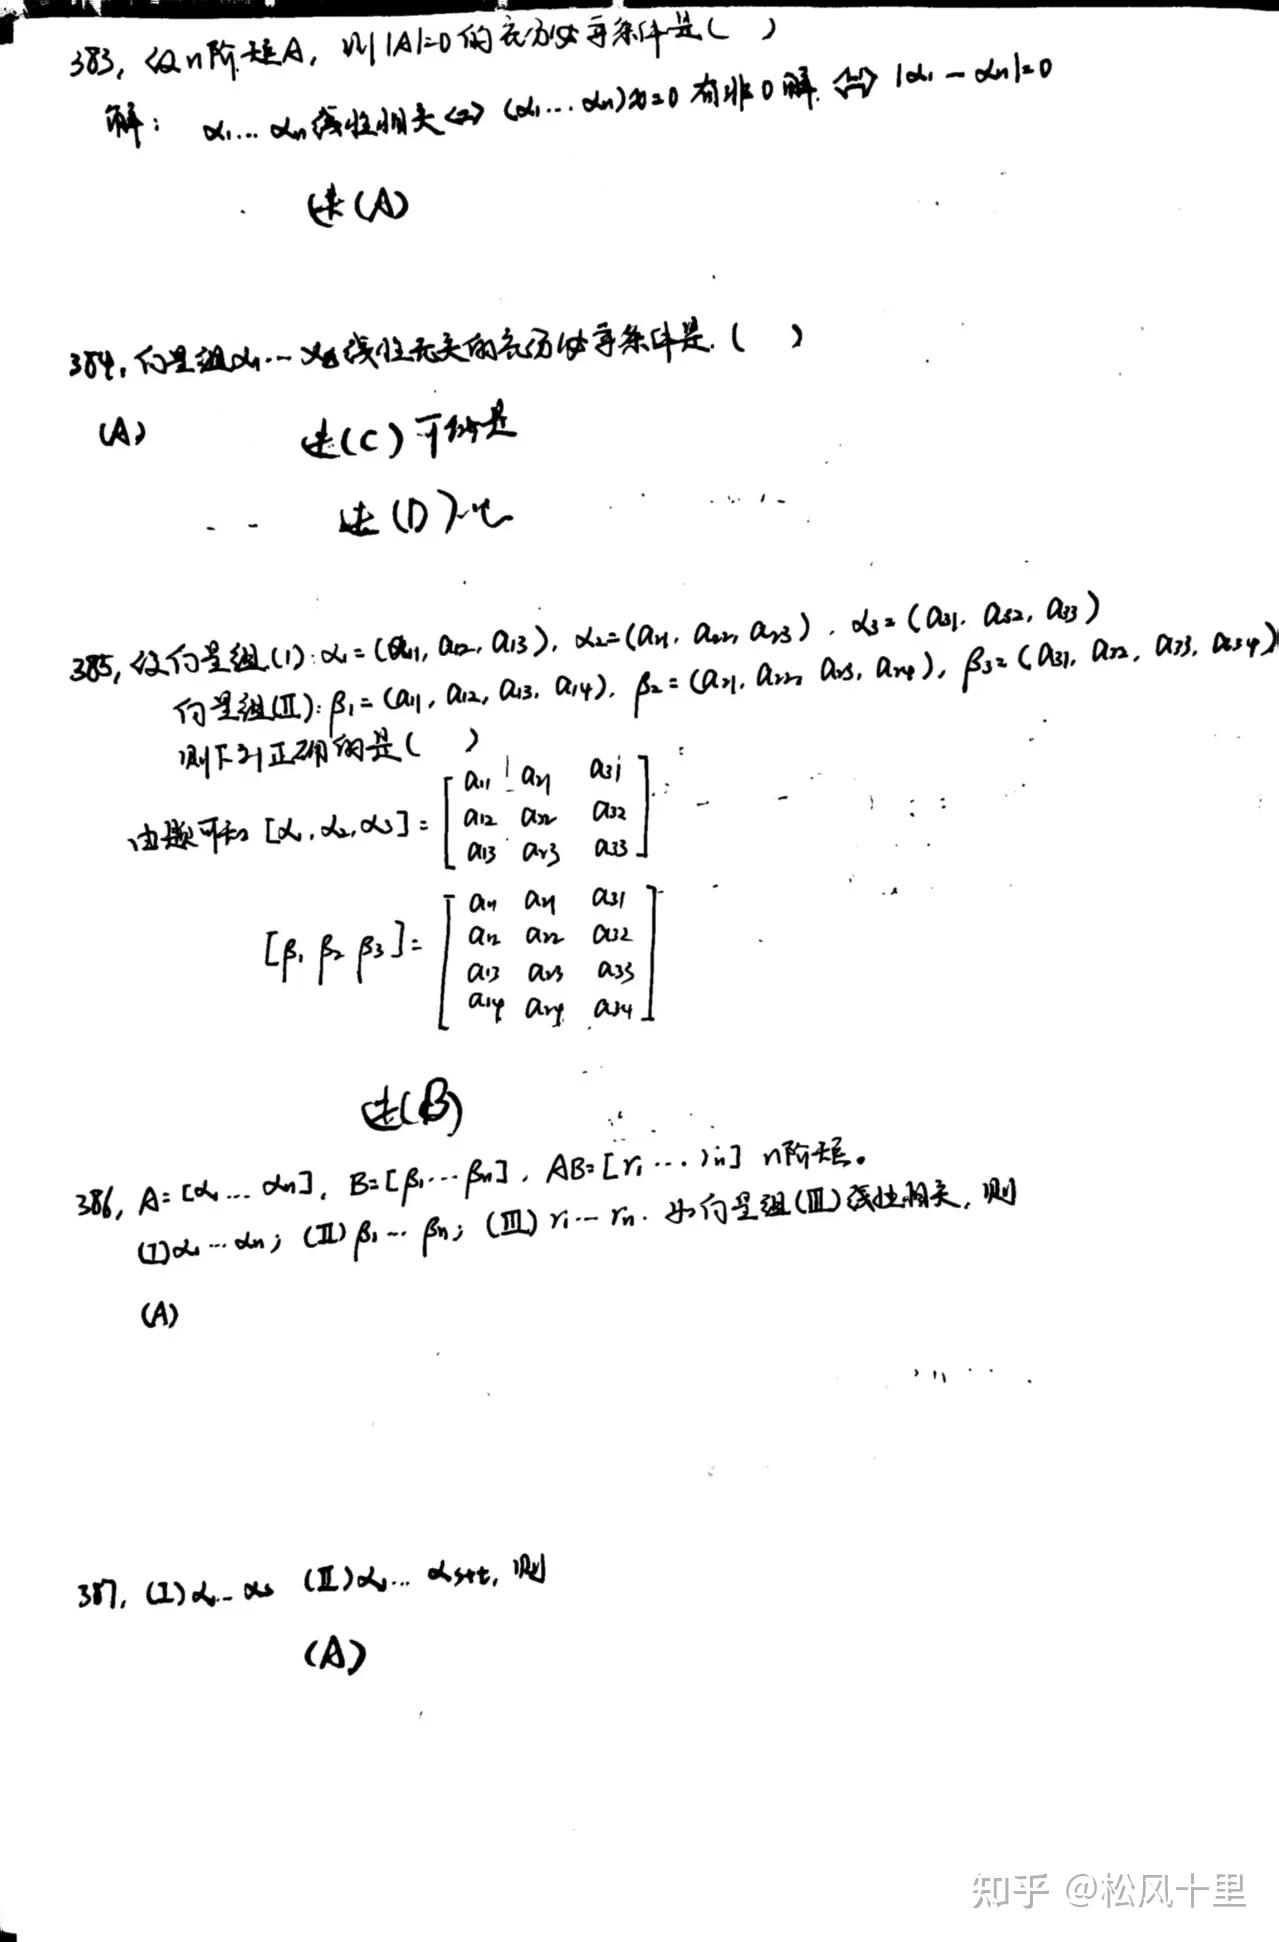 383, 设n阶矩A, 则|A|=0的充分必要条件是( )
解: α₁…αₙ线性相关<=>(α₁…αₙ)x=0有非0解<=>|α₁-αₙ|=0
选(A)
384, 向量组α₁…αₛ线性无关的充分必要条件是.( )
(A) 选(C)
选(D)
385, 设向量组(I):α₁=(a₁₁, a₁₂, a₁₃), α₂=(a₂₁, a₂₂, a₂₃), α₃=(a₃₁, a₃₂, a₃₃)
向量组(II):β₁=(a₁₁, a₁₂, a₁₃, a₁₄), β₂=(a₂₁, a₂₂, a₂₃, a₂₄), β₃=(a₃₁, a₃₂, a₃₃, a₃₄)
则下列正确的是( )
由题可知 [α₁, α₂, α₃]= [a₁₁ a₂₁ a₃₁
a₁₂ a₂₂ a₃₂
a₁₃ a₂₃ a₃₃]
[β₁ β₂ β₃]= [a₁₁ a₂₁ a₃₁
a₁₂ a₂₂ a₃₂
a₁₃ a₂₃ a₃₃
a₁₄ a₂₄ a₃₄]
选(B)
386, A=[α₁…αₙ], B=[β₁…βₙ], AB=[r₁…rₙ] n阶矩。
(I)α₁…αₙ; (II)β₁…βₙ; (III)r₁…rₙ. 如向量组(III)线性相关, 则
(A)
387, (I)α₁…αₛ (II)α₁…αₛ₊ₜ, 则
(A)
知乎 @松风十里